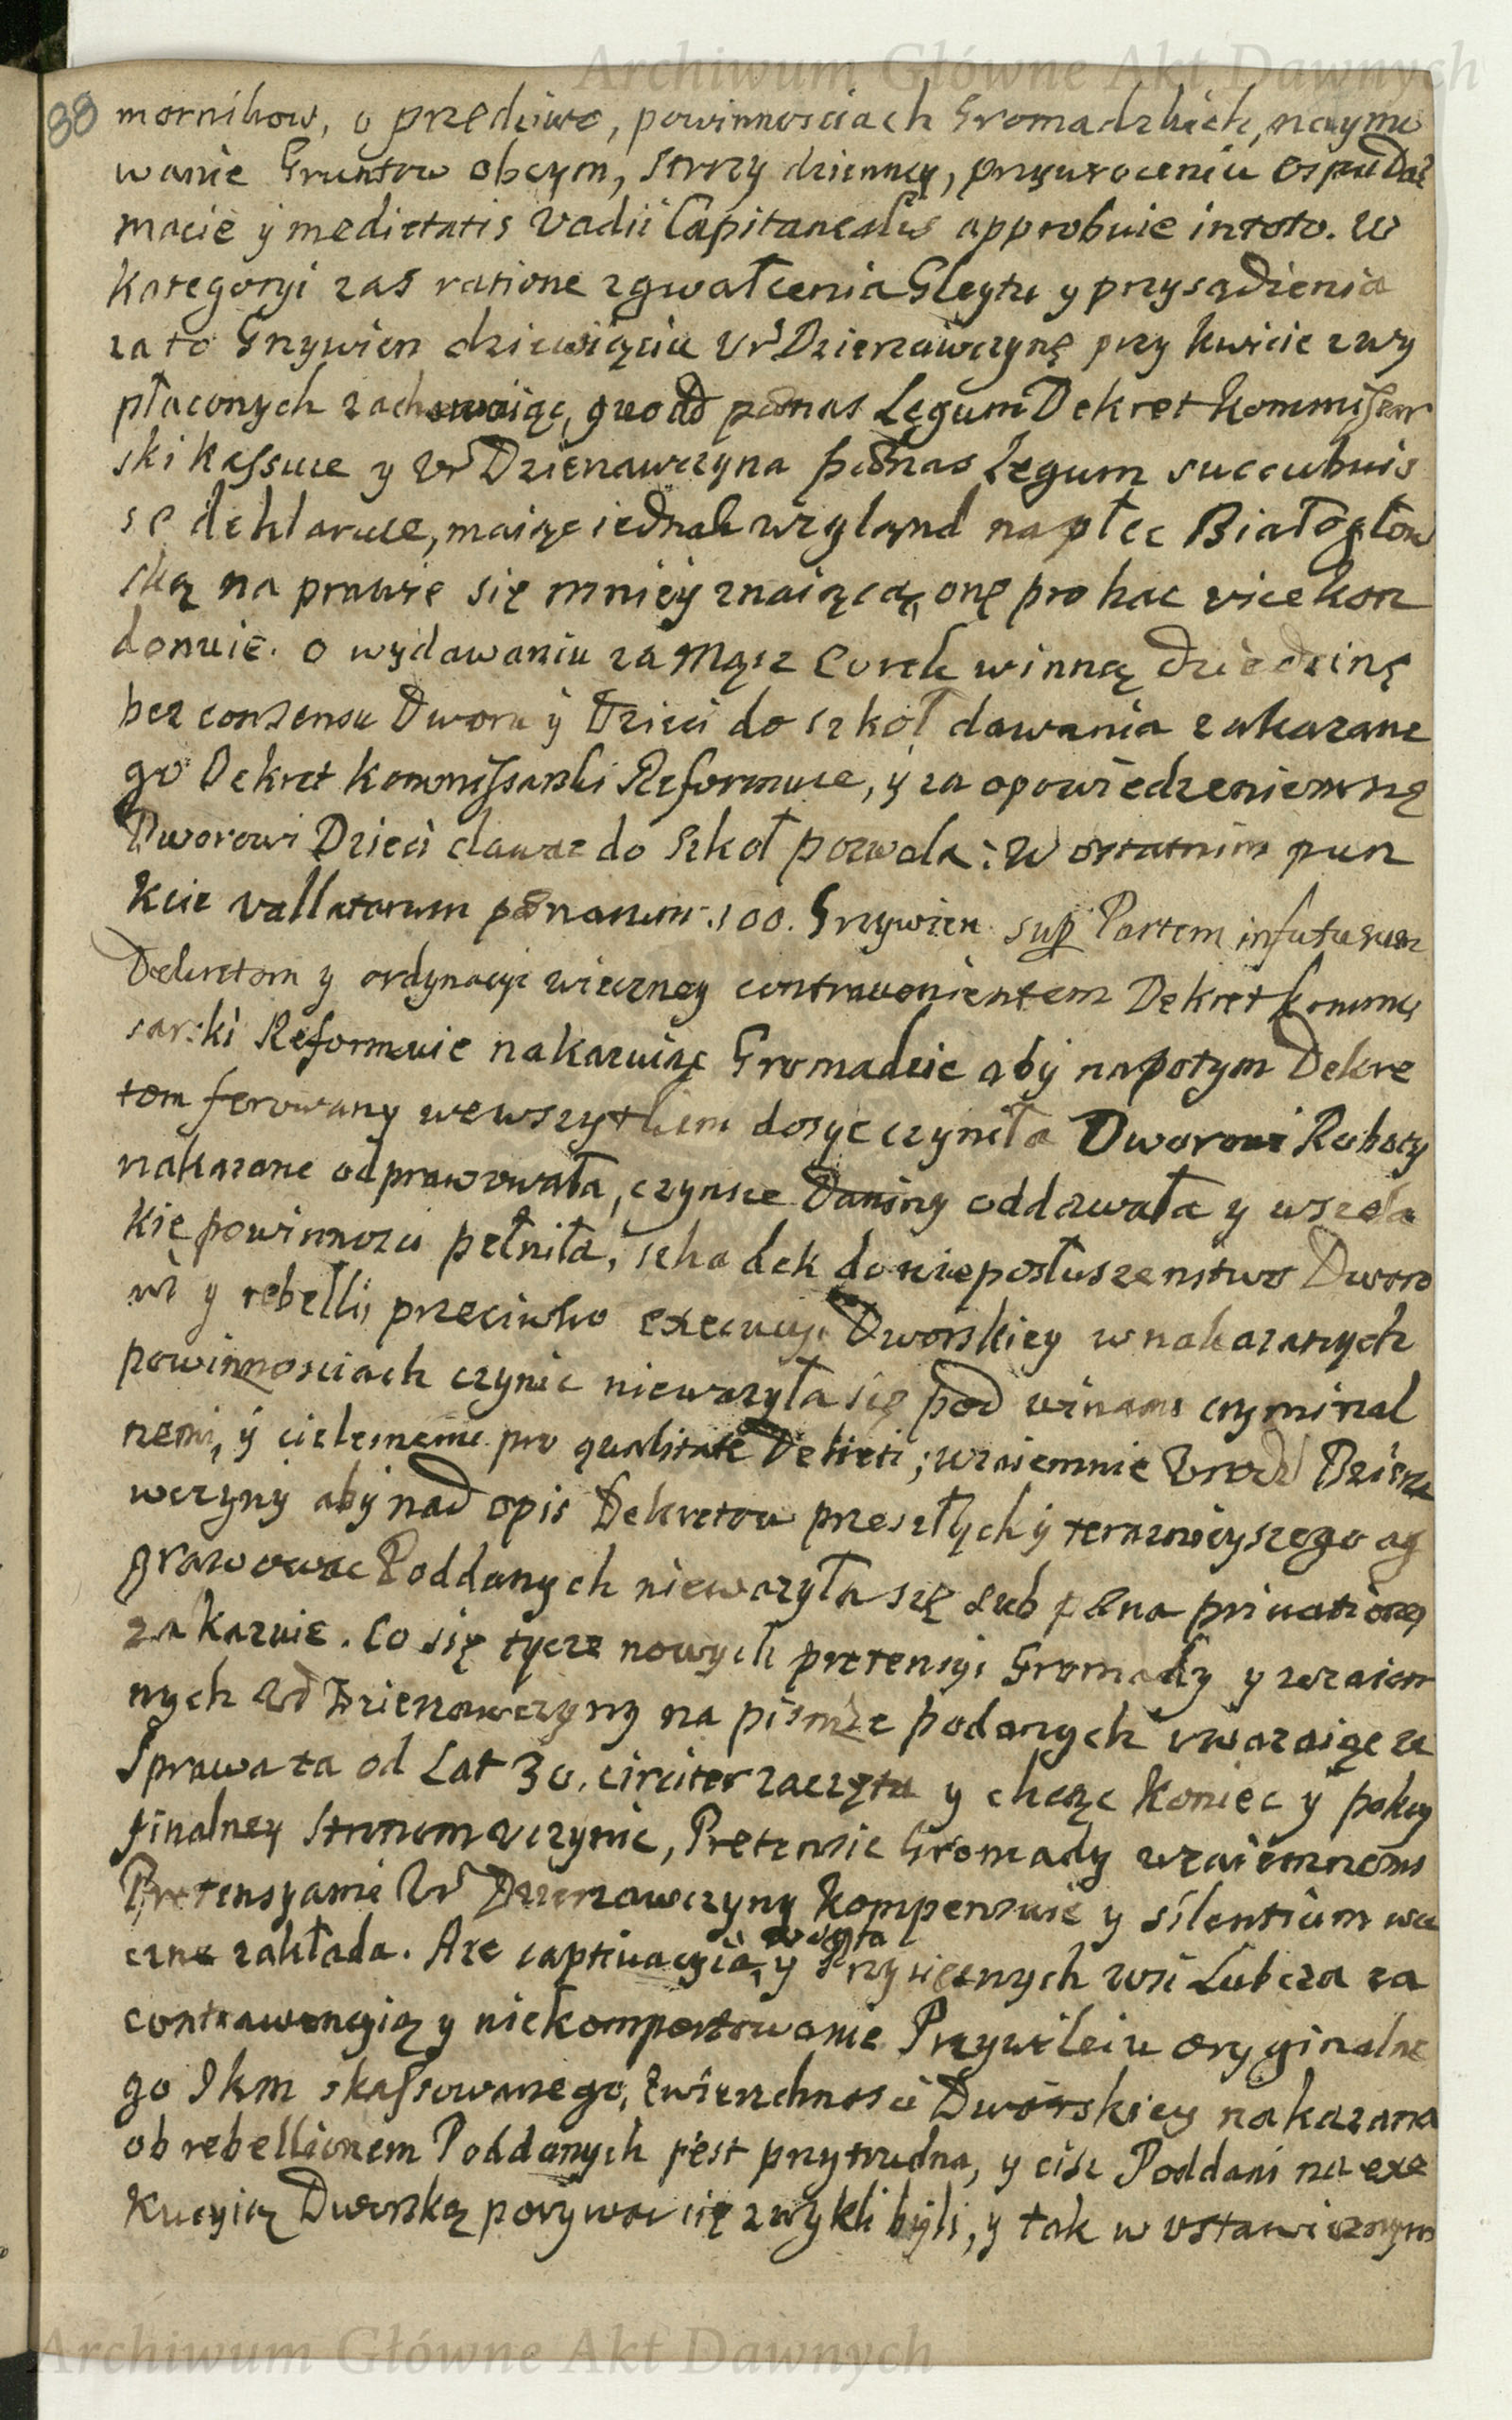 Archiwum Główne Akt Dawnych
38 mornikow, o przediwo, powinnosciach Gromadzkich, naymo
wanie Gruntow obcym, Strozy dzienney, przywroceniu
macie y medietatis Vadii Capitanealis approbuie in toto. W
Kategoryi zas ratione zgwałcenia Gleytu y przysądzenia
za to Grzywien dziewięciu Ur Dzierzawczynę przy kwicie z wy
płaconych zachowuiąc, quoad pœnas Legum Dekret Kommissar
ski kassuie y Ur Dzierzawczyna pœnas Legum succubuis
se deklaruie, maiąc iednak wzgląnd na płec Białogłow
ską na prawie się mniey znaiącą, onę pro hac vice kon
donuie. O wydawaniu za Mąsz Corek w inną dziedzinę
bez consensu Dworu y Dzieci do szkoł dawania zakazane
go Dekret Kommissarski Reformuie, y za opowiedzeniem się
Dworowi Dzieci dawac do Szkoł pozwala: W ostatnim pun
kcie vallatarum pœnarum 100. Grzywien sup Partem in futurum
Dekretom y ordynacyi wieczney contravenientem Dekret kommis
sarski Reformuie nakazuiąc Gromadzie aby napotym Dekre
tom ferowany we wszytkiem dosyc czyniła Dworowi Roboty
nakazane odprawowała, czynsze Daniny oddawała y wszela
kie powinnosci pełniła, schadek do nieposłuszenstwo Dworo
wi y rebellii przeciwko execucyi Dworskiey w nakazanych
powinnosciach czynic niewazyła się pod winami cryminal
nemi, y cielesnemi pro qualitate Delicti; wzaiemnie Urodz Dzierza
wczyny aby nad opis Dekretow przeszłych y teraznieyszego ag
grawowac Poddanych niewazyła się sub pœna privationis
zakazuie. Co się tycze nowych pretensyi Gromady y wzaiem
nych Ur Dzierzawczyny na pismie podanych uwazaiąc ze
Sprawa ta od Lat 30. circiter zaczęta y chcąc koniec y pokoy
finalney Stronom uczynic, Pretensie Gromady wzaiemnemi
Pretensyami Ur Dzierzawczyny kompensuie y silentium wie
czne zakłada. Aze captivacyia, y woyta Przysięznych wsi Lubcza za
contrawencyią y niekomportowanie Przywileiu oryginalne
go JKM skassowanego, Zwierzchnosci Dworskiey nakazana
ob rebellionem Poddanych jest przytrudna, y cisz Poddani na exe
kucyią Dworską porywac się zwykli byli, y tak w ustawicznym
Archiwum Główne Akt Dawnych